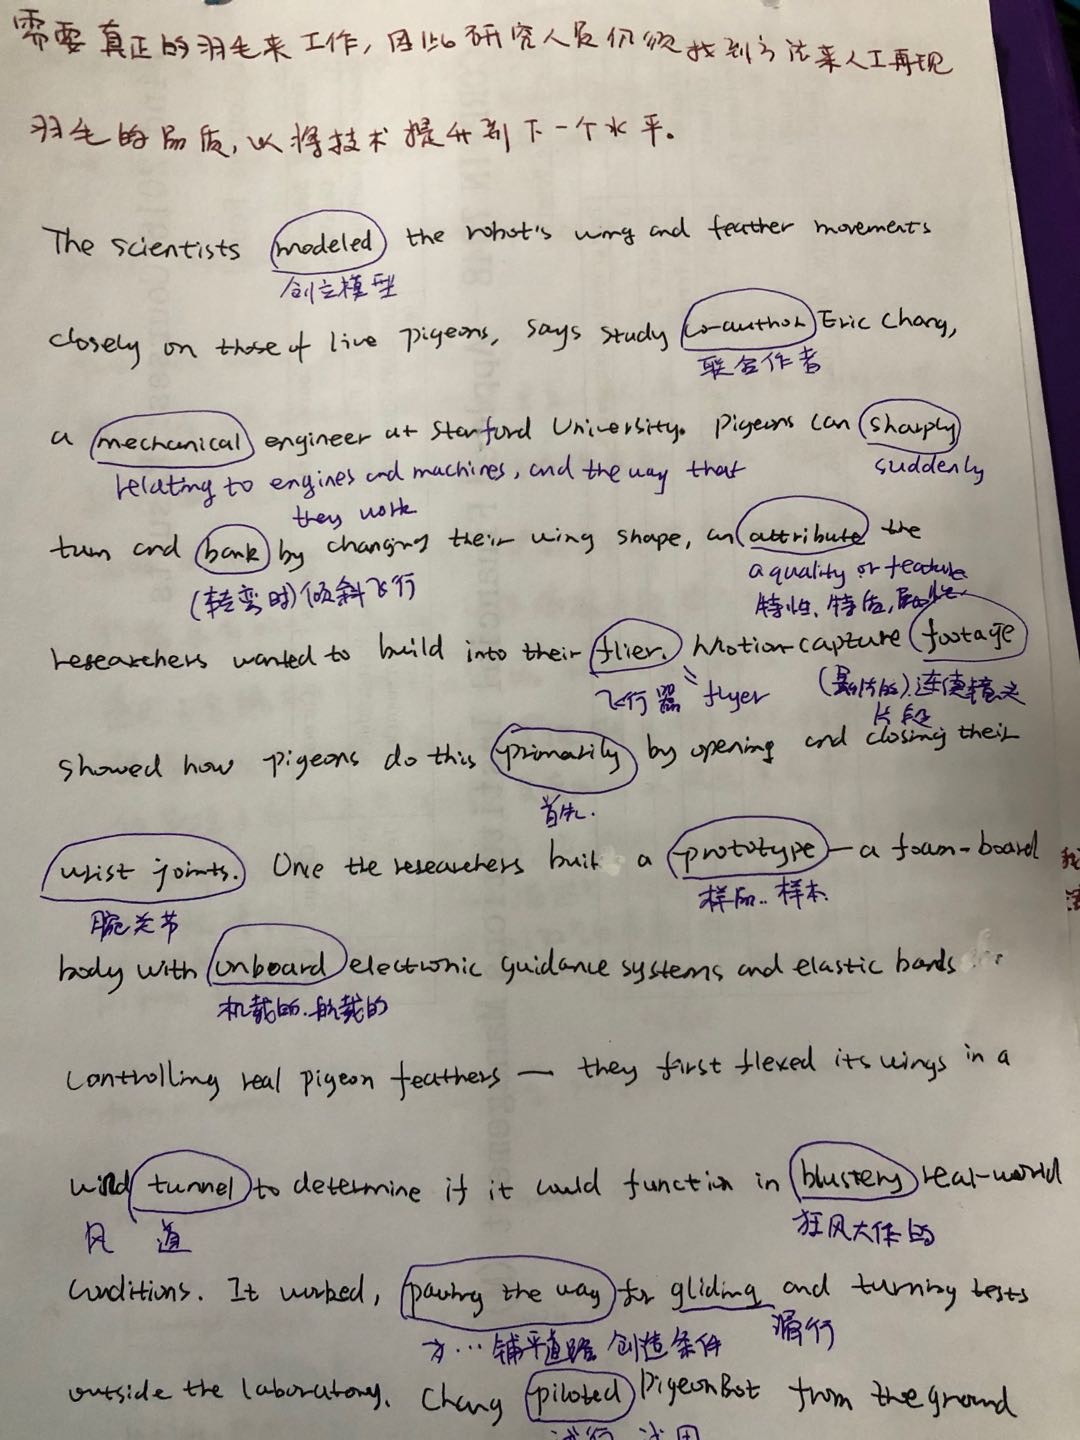 需要真正的羽毛来工作，因此研究人员仍须找到方法来人工再现
羽毛的品质，以将技术提升到下一个水平。
The scientists modeled the robot's wing and feather movements
创立模型
closely on those of live pigeons, says study co-author Eric Chang,
联合作者
a mechanical engineer at Stanford University. Pigeons can sharply
relating to engines and machines, and the way that suddenly
they work
turn and bank by changing their wing shape, an attribute the
(转弯时)倾斜飞行 a quality or feature
特性、特质,
researchers wanted to build into their flier. Motion-capture footage
飞行器 = flyer (影片的)连续镜头
片段
showed how pigeons do this primarily by opening and closing their
首先.
wrist joints. Once the researchers built a prototype — a foam-board
腕关节 样品.. 样本.
body with onboard electronic guidance systems and elastic bands
机载的.航载的
controlling real pigeon feathers — they first flexed its wings in a
wind tunnel to determine if it could function in blustery real-world
风 道 狂风大作的
conditions. It worked, paving the way for gliding and turning tests
为…铺平道路 创造条件 滑行
outside the laboratory. Chang piloted PigeonBot from the ground